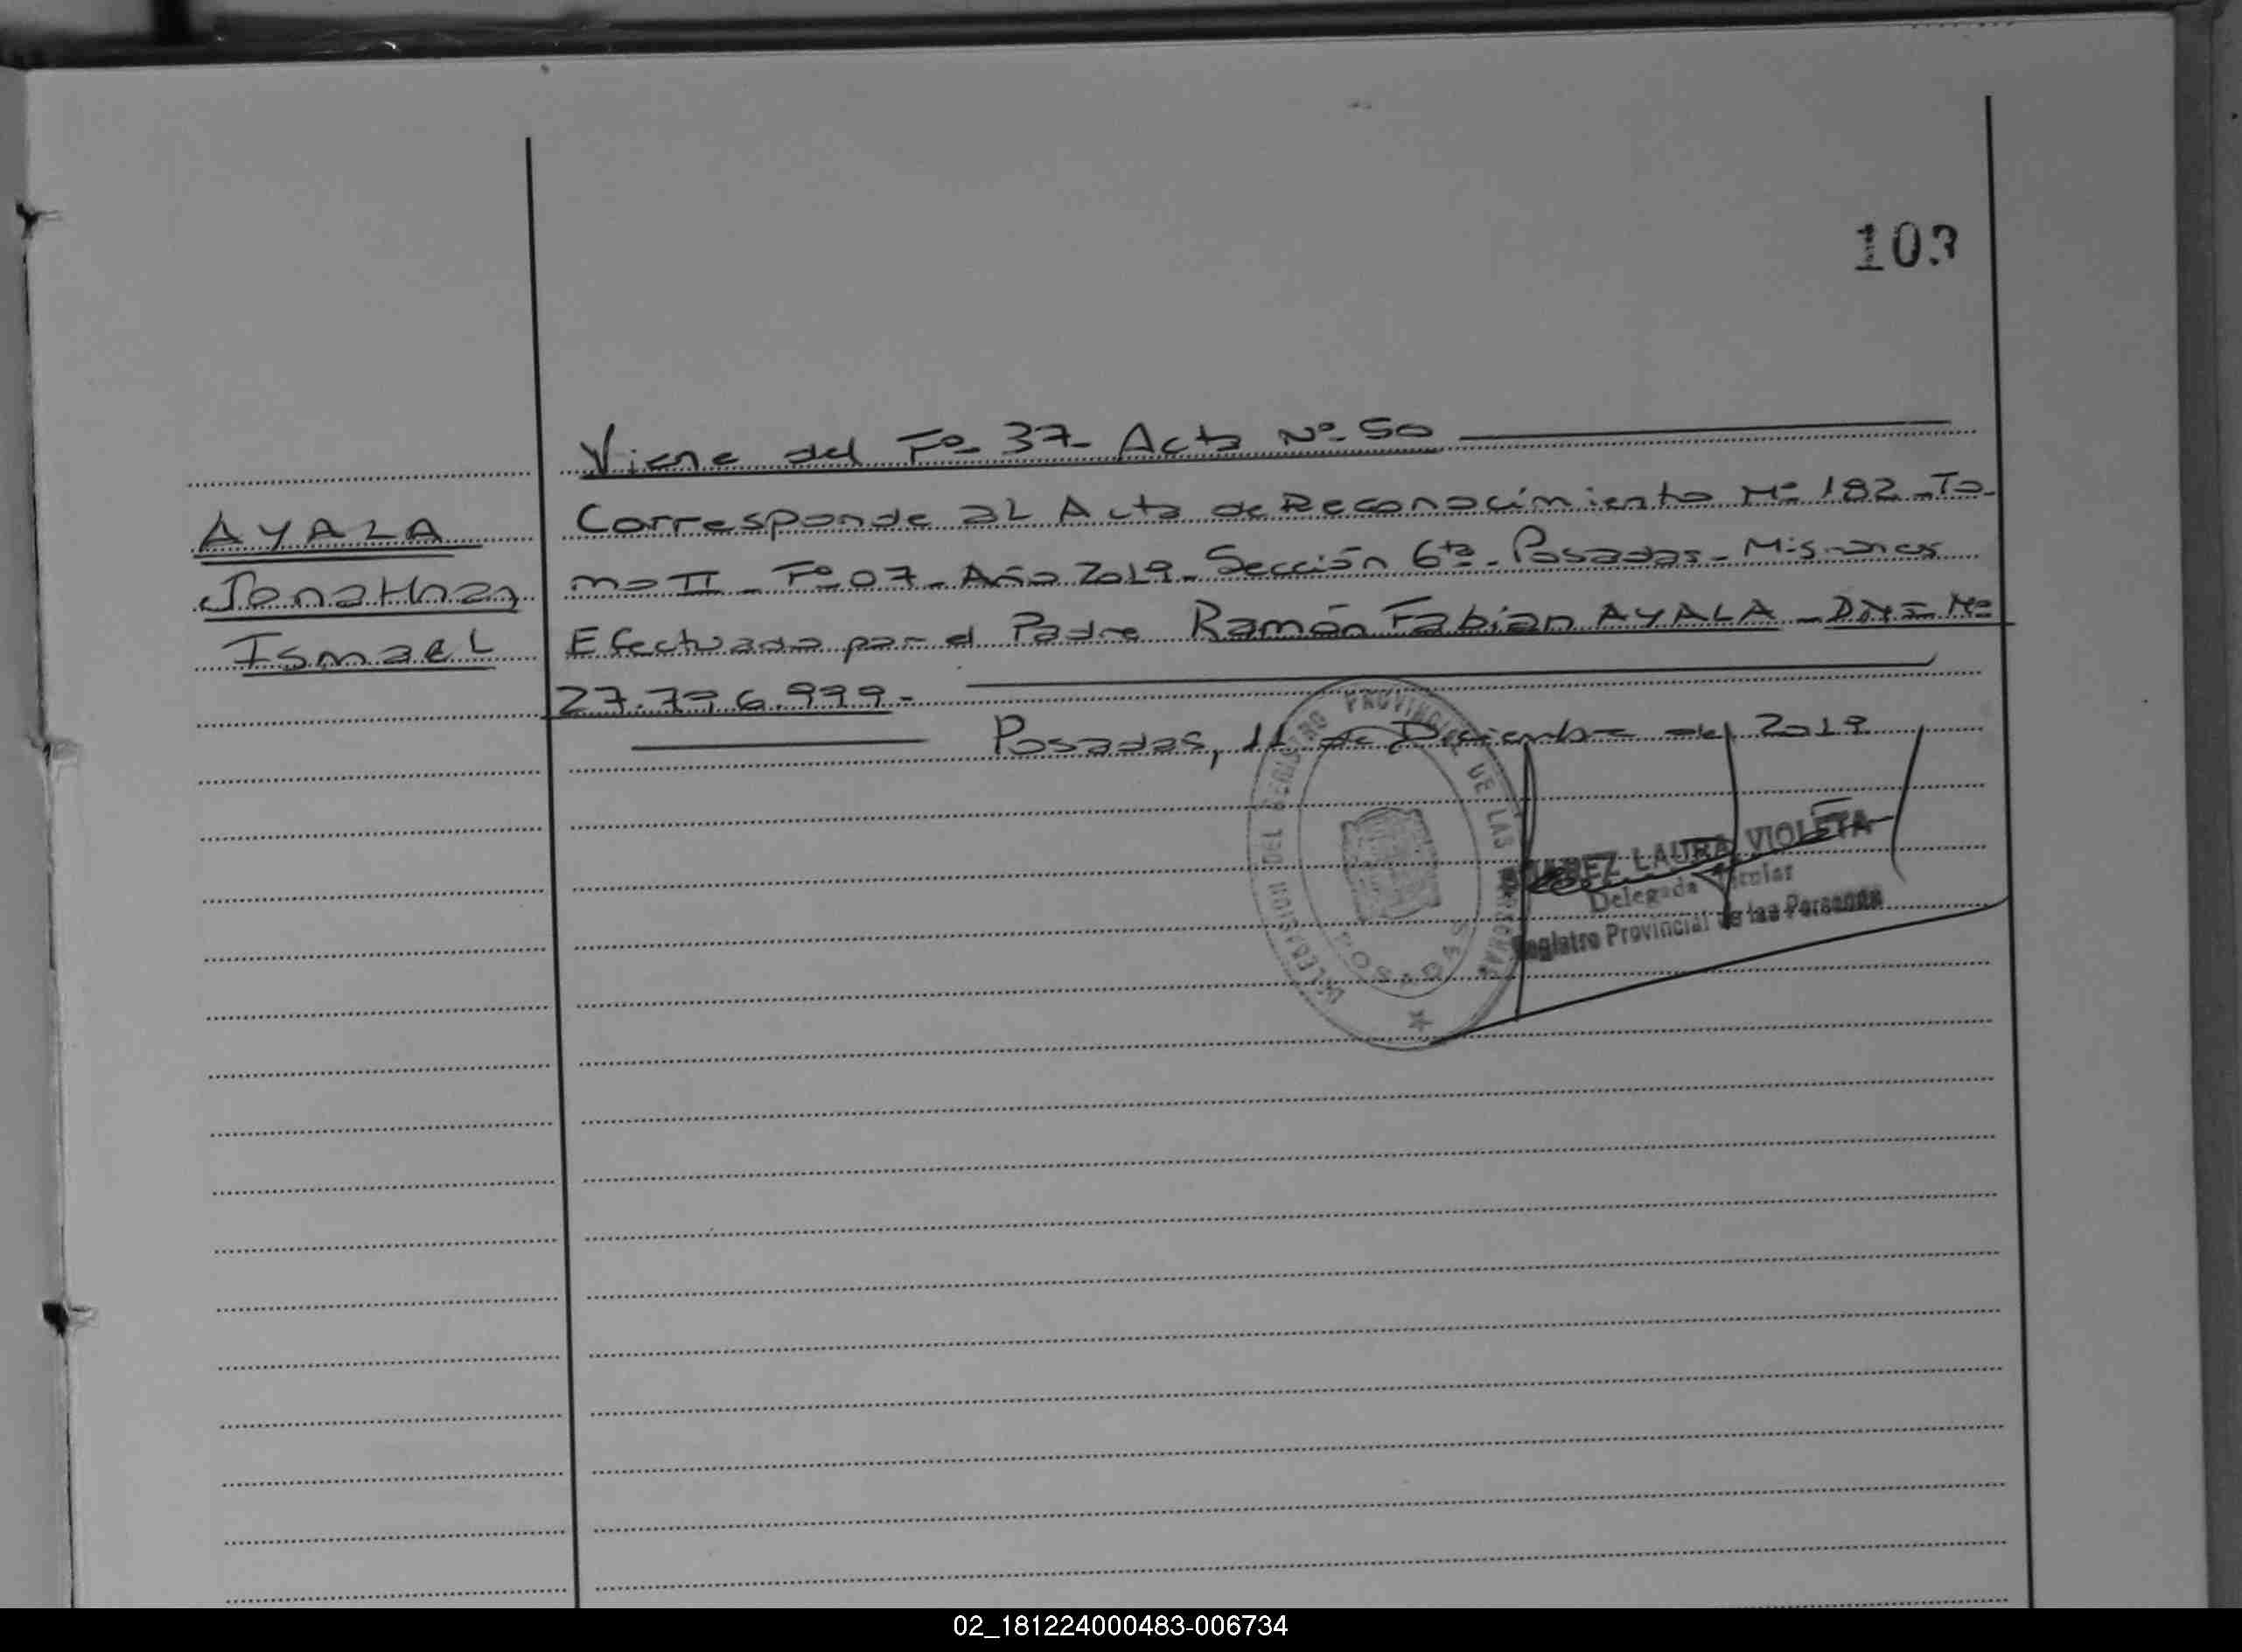 103
Viene del Fº 37- Acta Nº 50
Corresponde al Acta de Reconocimiento Nº 182 - To-
AYALA
mo II - Fº 07 - Año 2019 - Sección 6ta - Posadas - Misiones
Jonathan
Efectuado por el Padre Ramón Fabian AYALA - DNI Nº
Ismael
27.796.999-
Posadas, 11 de Diciembre del 2019
DELEGACION DEL REGISTRO PROVINCIAL DE LAS PERSONAS
LAURA VIOLETA
Delegada Titular
Registro Provincial de las Personas
02_181224000483-006734